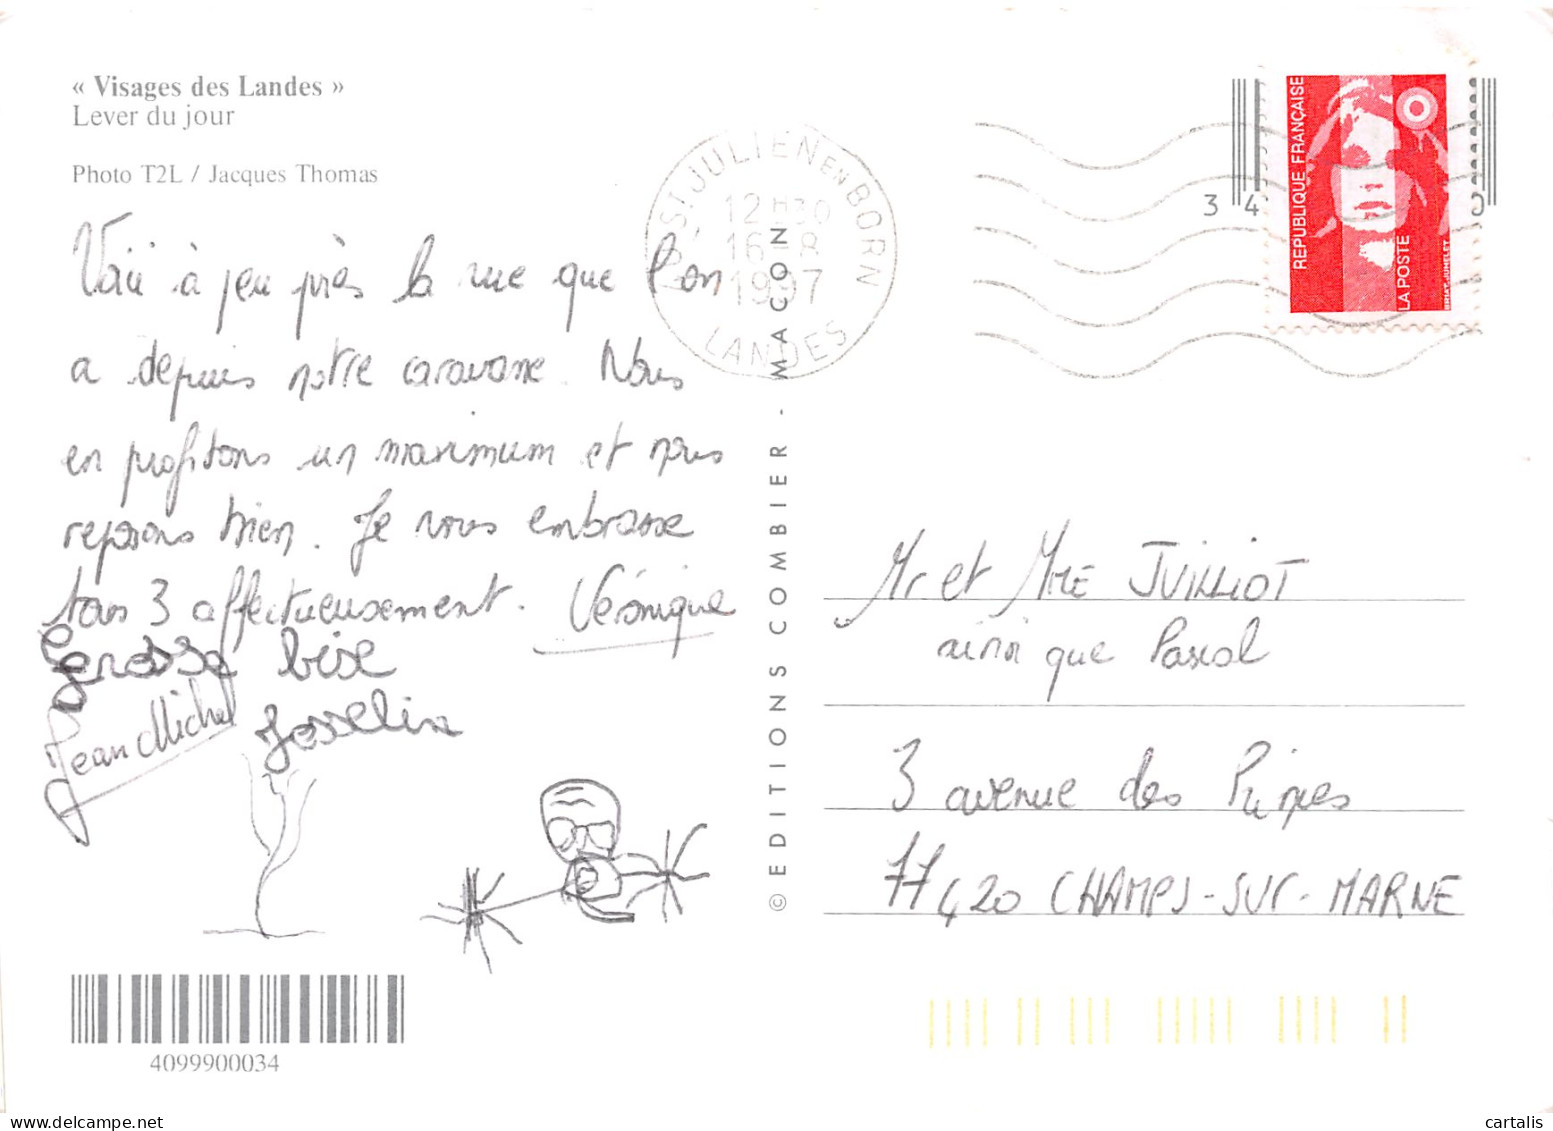 « Visages des Landes »
Lever du jour
Photo T2L / Jacques Thomas
Voici à peu près la vue que l'on
a depuis notre caravane. Nous
en profitons un maximum et nous
reposons bien. Je vous embrasse
tous 3 affectueusement. Véronique
Grosse bise
Jean Michel Josselin
4099900034
© EDITIONS COMBIER - MACON
ST JULIEN EN BORN
12H30
16-8
1997
LANDES
3 4
REPUBLIQUE FRANÇAISE
LA POSTE
BRIAT-JUMELET
Mr et Mme JUILLIOT
ainsi que Pascal
3 avenue des Pinres
77420 CHAMPS-SUr-MARNE
cartalis